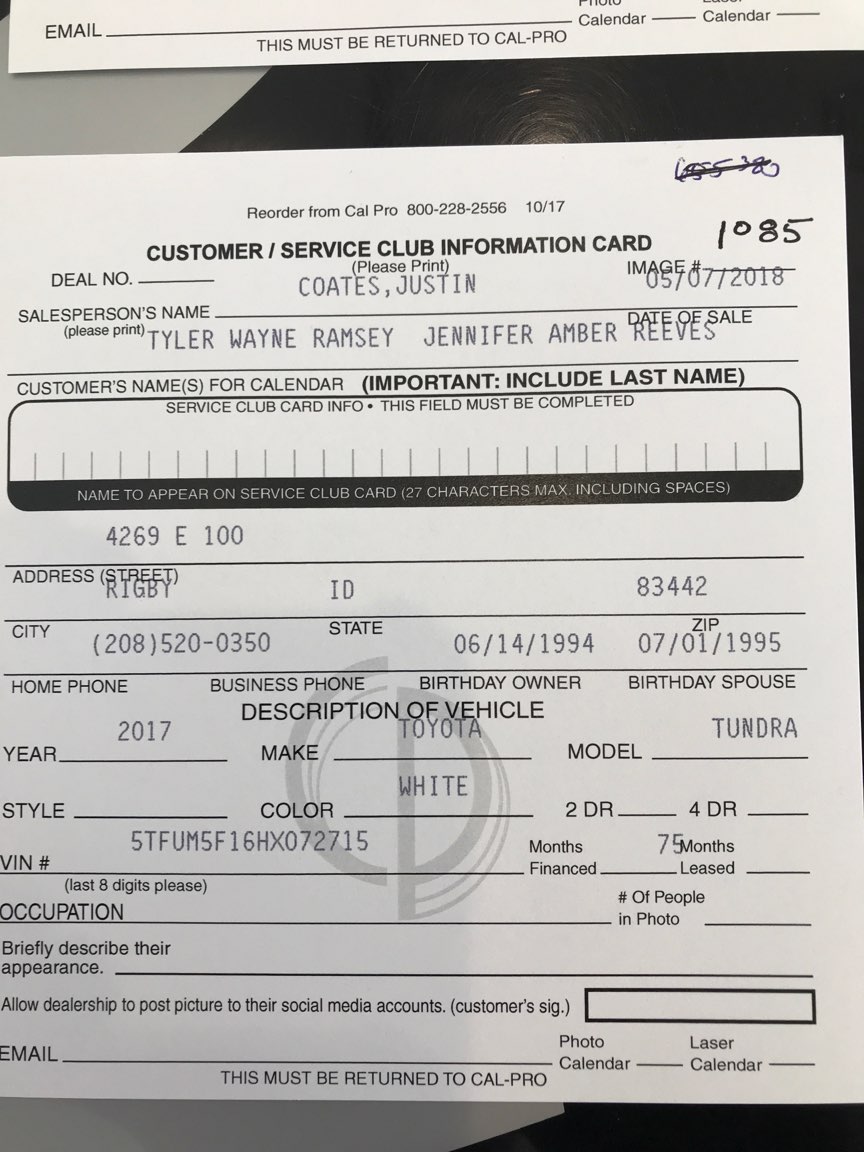 Photo Laser
EMAIL Calendar Calendar
THIS MUST BE RETURNED TO CAL-PRO
Reorder from Cal Pro 800-228-2556 10/17
1085
CUSTOMER / SERVICE CLUB INFORMATION CARD
(Please Print)
DEAL NO. COATES,JUSTIN IMAGE # 05/07/2018
SALESPERSON'S NAME DATE OF SALE
(please print) TYLER WAYNE RAMSEY JENNIFER AMBER REEVES
CUSTOMER'S NAME(S) FOR CALENDAR (IMPORTANT: INCLUDE LAST NAME)
SERVICE CLUB CARD INFO • THIS FIELD MUST BE COMPLETED
NAME TO APPEAR ON SERVICE CLUB CARD (27 CHARACTERS MAX. INCLUDING SPACES)
4269 E 100
ADDRESS (STREET)
RIGBY ID 83442
CITY STATE ZIP
(208)520-0350 06/14/1994 07/01/1995
HOME PHONE BUSINESS PHONE BIRTHDAY OWNER BIRTHDAY SPOUSE
DESCRIPTION OF VEHICLE
2017 TOYOTA TUNDRA
YEAR MAKE MODEL
WHITE
STYLE COLOR 2 DR 4 DR
5TFUM5F16HX072715 75
VIN # Months Financed Months Leased
(last 8 digits please)
OCCUPATION # Of People in Photo
Briefly describe their
appearance.
Allow dealership to post picture to their social media accounts. (customer's sig.)
Photo Laser
EMAIL Calendar Calendar
THIS MUST BE RETURNED TO CAL-PRO